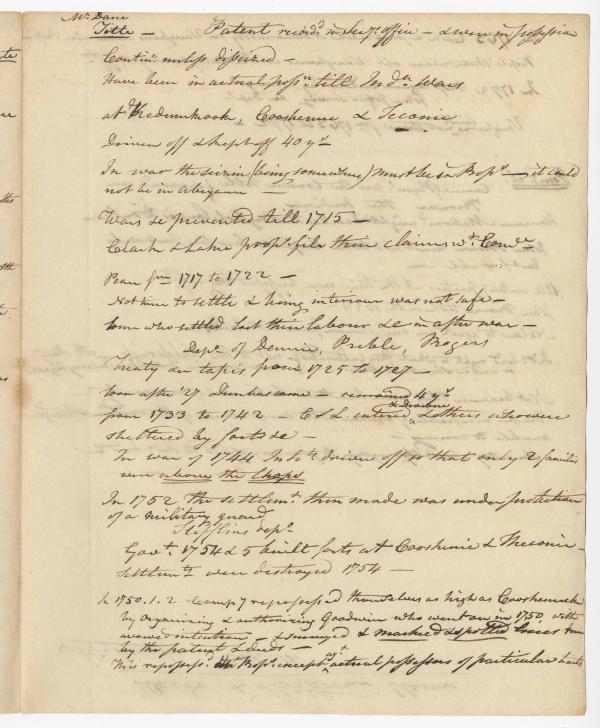 Mr. Dane
Title — Patent record'd in Sec'y. office — & were in possession
Contin: unless disseised —
Have been in actual poss.n till Ind.n Wars
at Cooshenoc & Teconic
Driven off & kept off 40 y.rs
In war the seizin (being somewhere) must be in Prop.rs — it could
not be in abeyance —
Wars &c prevented till 1715 —
Clark & Lake prop.rs file their claims w.t Com.ee
Peace from 1717 to 1722 —
Not time to settle & being interiour was not safe —
Some who settled lost their labour &c in after war —
Dep.s of Dennie, Preble, Rogers
Treaty on tapis from 1725 to 1727 —
Soon after '27 Dunbar came — remained 4 y.rs
from 1733 to 1742 — C & L. entered & Drowne & others who were
sheltered by forts &c —
In war of 1744 Inh.ts driven off so that only 2 families
were above the Chops
In 1752 the settlem.t then made was under protection
of a military guard
dep.n
Gov.t. 1754 & 5 built forts at Cooshenoc & Theconic —
settlem.ts were destroyed 1754 —
In 1750.1.2 Comp.y repossessed themselves as high as Cooshenock
by organising & authorising Goodwin who went on in 1750 with
avowed intention — & surveyed & marked & spotted trees & run
by the patent & deeds —
This repossess.d Prop.rs except ag.t actual possessors of particular tracts